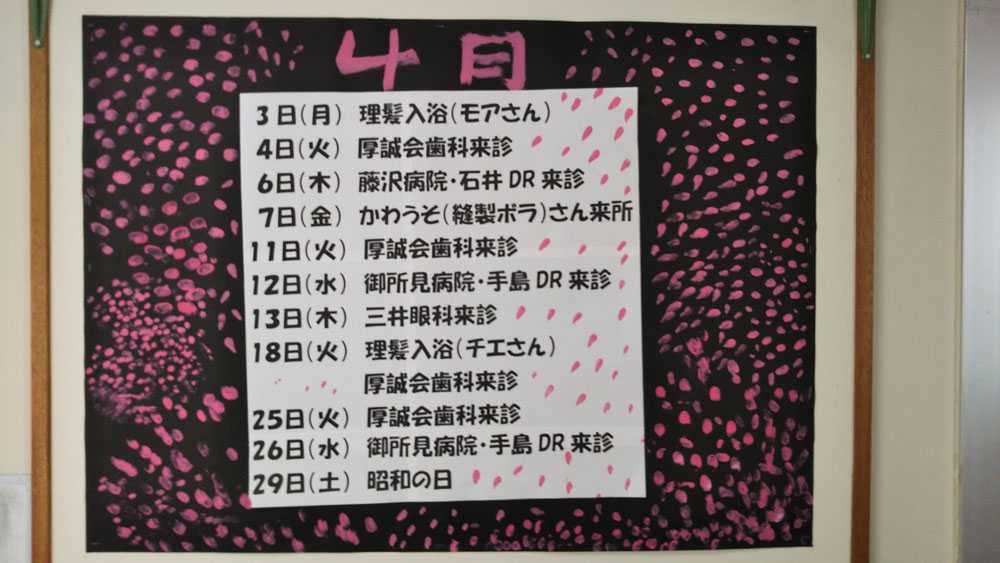 4月
3日(月) 理髪入浴(モアさん)
4日(火) 厚誠会歯科来診
6日(木) 藤沢病院・石井DR来診
7日(金) かわうそ(縫製ボラ)さん来所
11日(火) 厚誠会歯科来診
12日(水) 御所見病院・手島DR来診
13日(木) 三井眼科来診
18日(火) 理髪入浴(チエさん)
厚誠会歯科来診
25日(火) 厚誠会歯科来診
26日(水) 御所見病院・手島DR来診
29日(土) 昭和の日